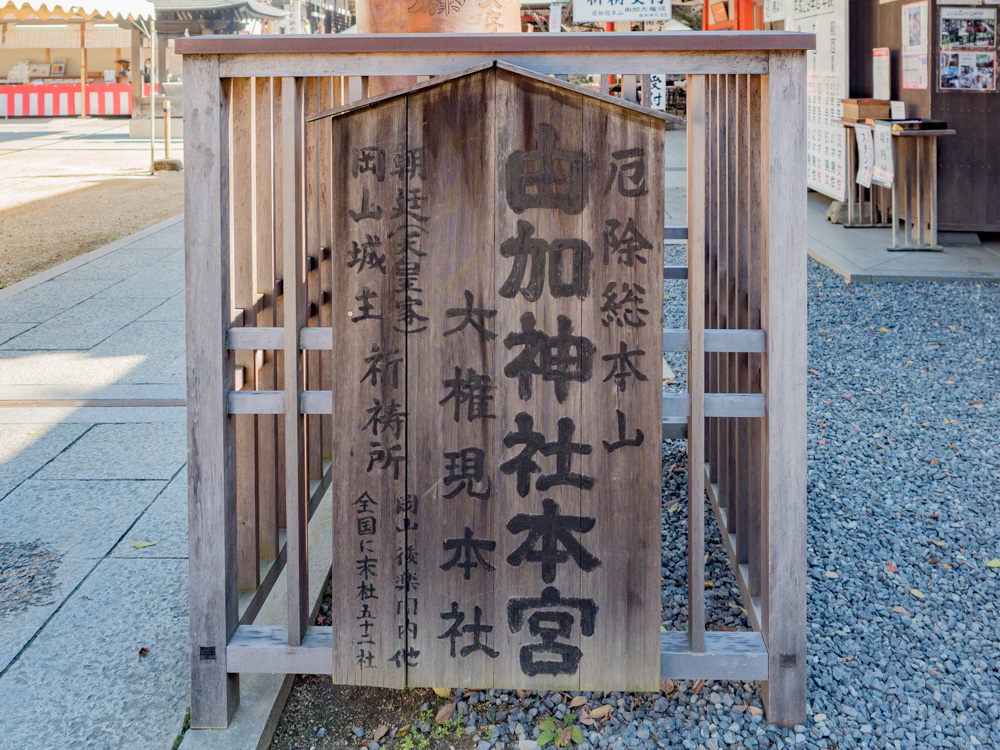 厄除総本山
由加神社本宮
大権現本社
朝廷(天皇家)
岡山城主
祈祷所
岡山後楽園内他
全国に末社五十二社